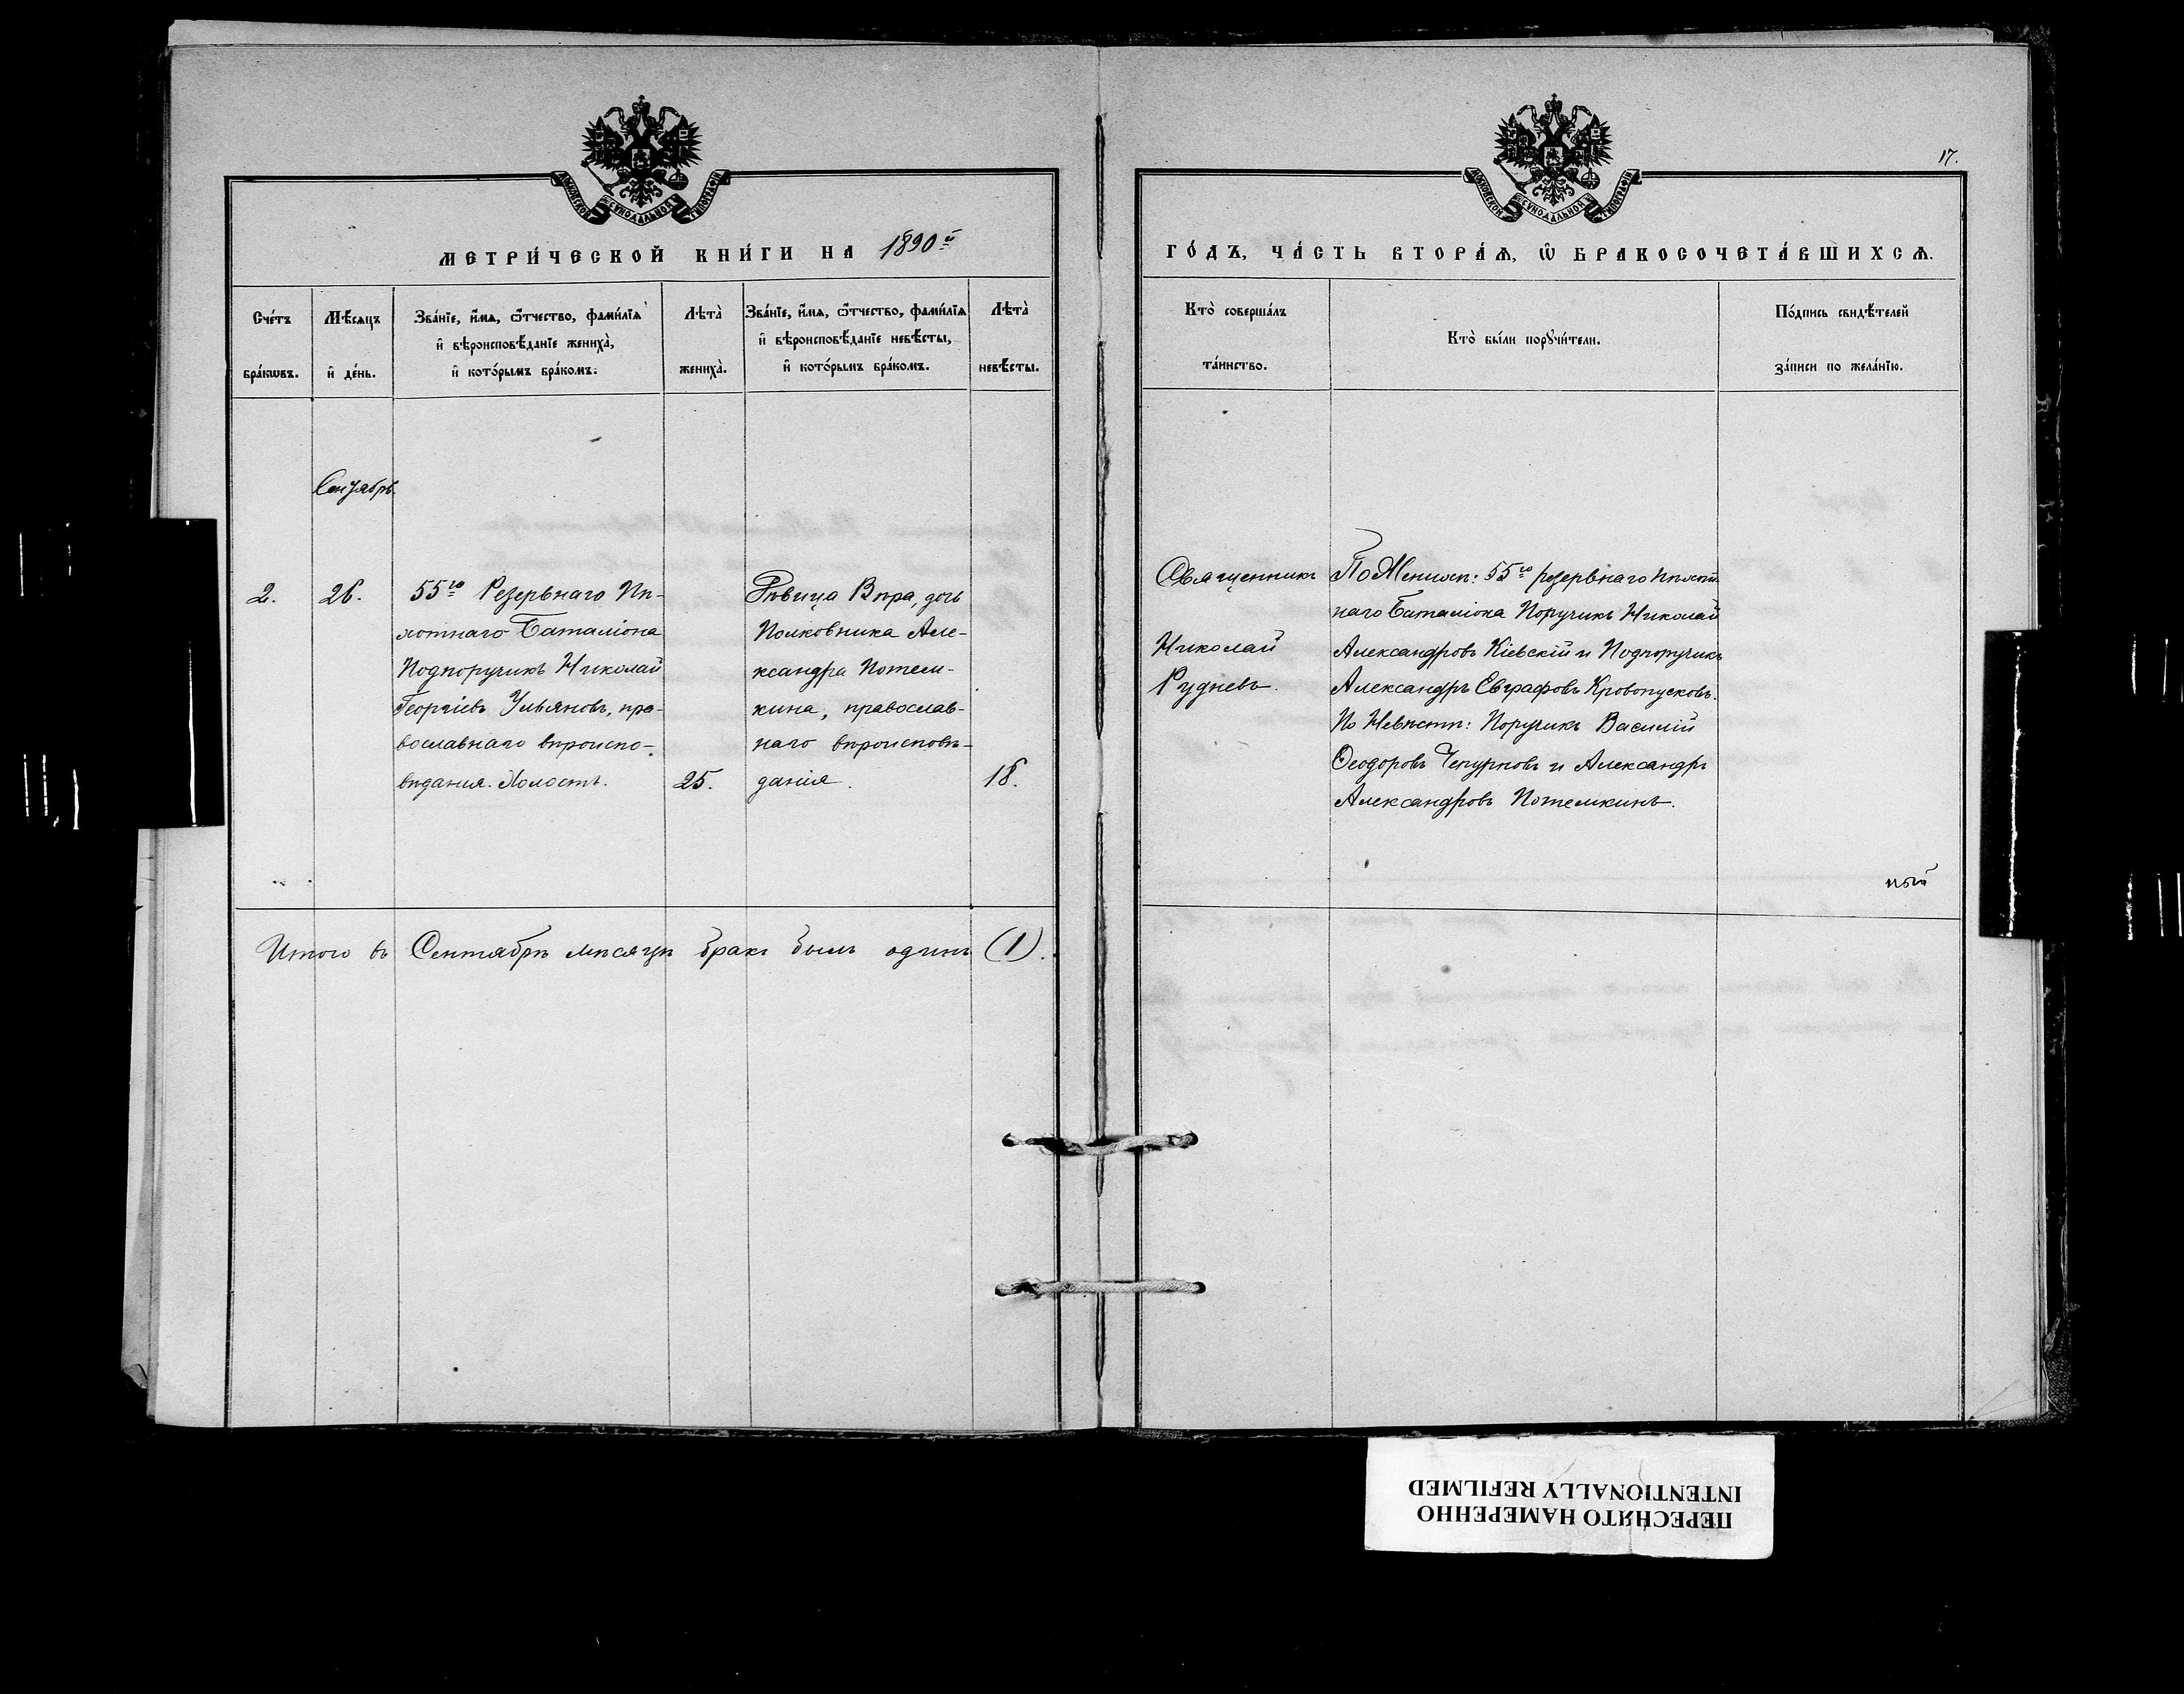 17.
МОСКОВСКОЙ СѴНОДАЛЬНОЙ ТИПОГРАФІИ
МОСКОВСКОЙ СѴНОДАЛЬНОЙ ТИПОГРАФІИ
МЕТРИ́ЧЕСКОЙ КНИ́ГИ НА 1890й
ГО́ДЪ, ЧА́СТЬ ВТОРА́Ѧ, Ѽ БРАКОСОЧЕТА́ВШИХСѦ.
Сче́тъ
бра́кѡвъ.
Мѣ́сяцъ
и҆ де́нь.
Зва́нїе, и҆́мѧ, ѻ҆́тчество, фами́лїѧ
и҆ вѣроисповѣ́данїе жениха̀,
и҆ кото́рымъ бра́комъ.
Лѣта̀
жениха̀.
Зва́нїе, и҆́мѧ, ѻ҆́тчество, фами́лїѧ
и҆ вѣроисповѣ́данїе невѣ́сты,
и҆ кото́рымъ бра́комъ.
Лѣта̀
невѣ́сты.
Кто̀ соверша́лъ
та́инство.
Кто̀ бы́ли порꙋчи́тели.
По́дпись свидѣ́телей
за́писи по жела́нїю.
Сентябрь.
2.
26.
55го Резервнаго Пѣ-
хотнаго Баталіона
Подпоручикъ Николай
Георгіевъ Ульяновъ, пра-
вославнаго вѣроиспо-
вѣдания. Холостъ.
25.
Дѣвица Вѣра, дочь
Полковника Але-
ксандра Потем-
кина, православ-
наго вѣроисповѣ-
данія.
18.
Священникъ
Николай
Рудневъ.
По Женихѣ: 55го резервнаго пѣхот-
наго Баталіона Поручикъ Николай
Александровъ Кіевскій и Подпоручикъ
Александръ Евграфовъ Кровопусковъ.
По Невѣстѣ: Поручикъ Василій
Ѳеодоровъ Чепурновъ и Александръ
Александровъ Потемкинъ.
ный
Итого въ Сентябрѣ мѣсяцѣ бракъ былъ одинъ (1).
ПЕРЕСНЯТО НАМЕРЕННО
INTENTIONALLY REFILMED